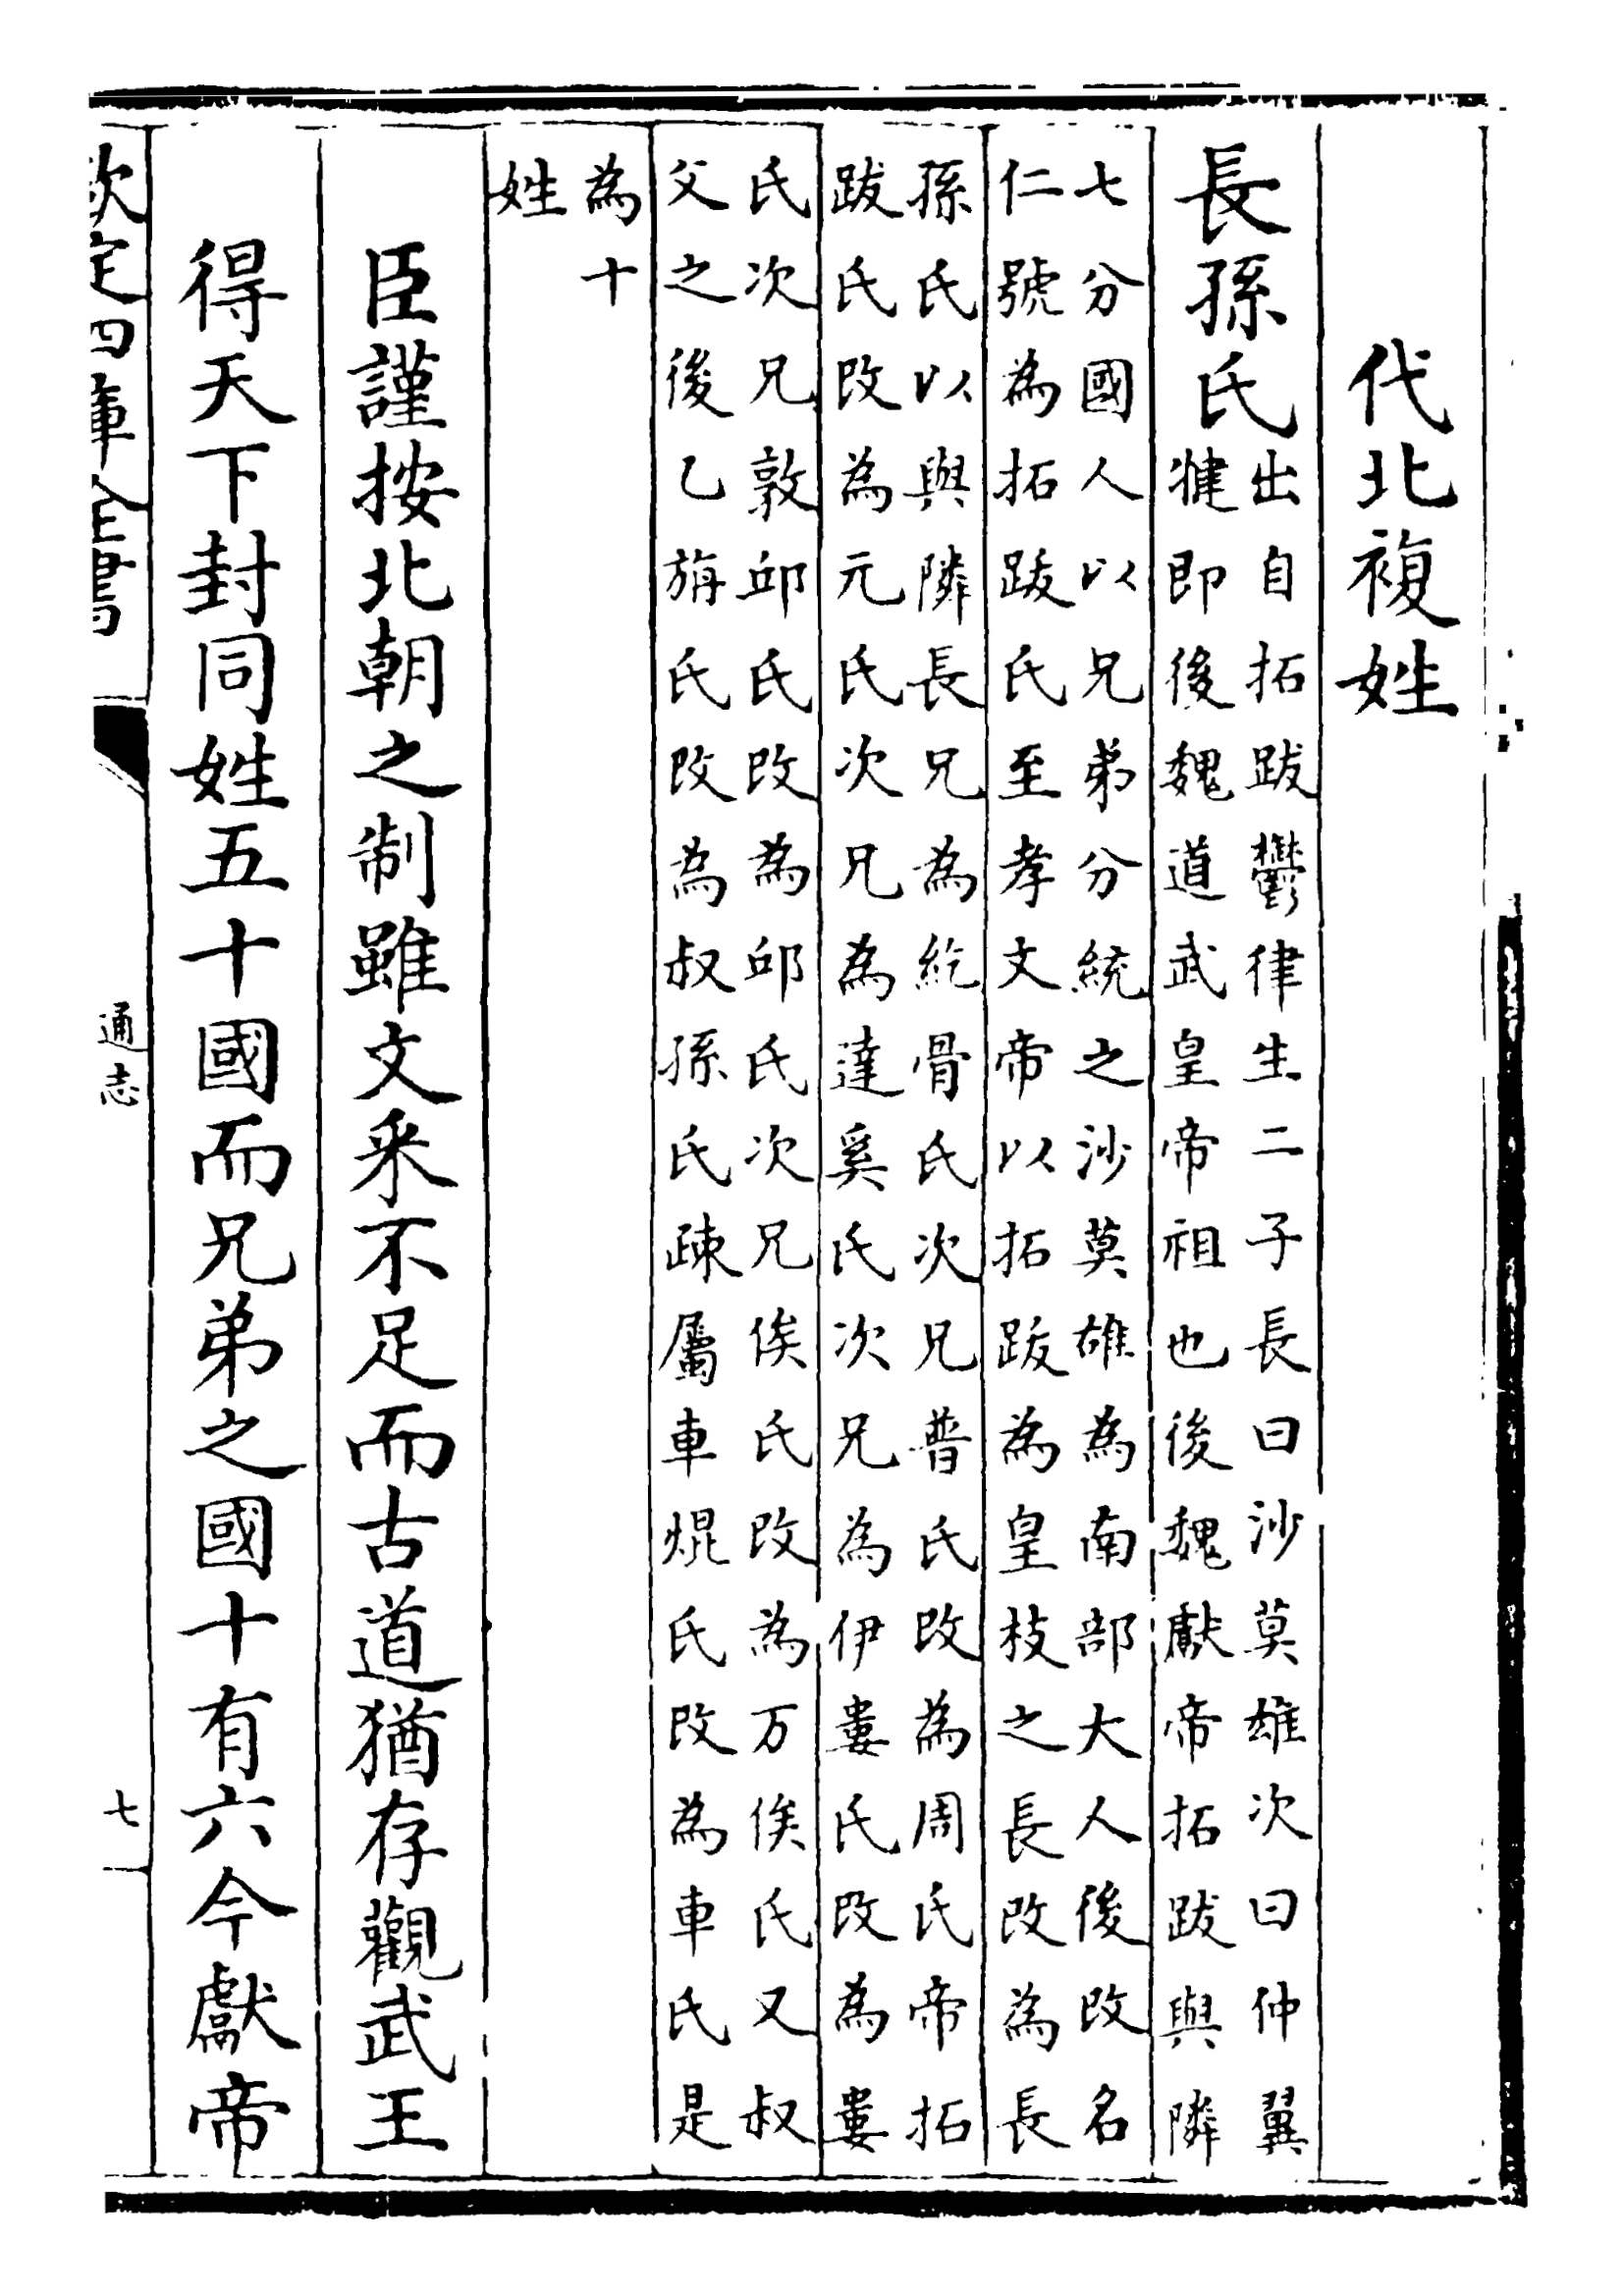 代北複姓
長孫氏出自拓跋鬱律生二子長曰沙莫雄次曰仲翼
犍即後魏道武皇帝祖也後魏獻帝拓跋與隣
七分國人以兄弟分統之沙莫雄為南部大人後改名
仁號為拓跋氏至孝文帝以拓跋為皇枝之長改為長
孫氏以與隣長兄為紇骨氏次兄普氏改為周氏帝拓
跋氏改為元氏次兄為達奚氏次兄為伊婁氏改為婁
氏次兄敦邱氏改為邱氏次兄俟氏改為万俟氏又叔
父之後乙旃氏改為叔孫氏疎屬車焜氏改為車氏是
為十
姓
臣謹按北朝之制雖文采不足而古道猶存觀武王
得天下封同姓五十國而兄弟之國十有六今獻帝
欽定四庫全書
通志
七